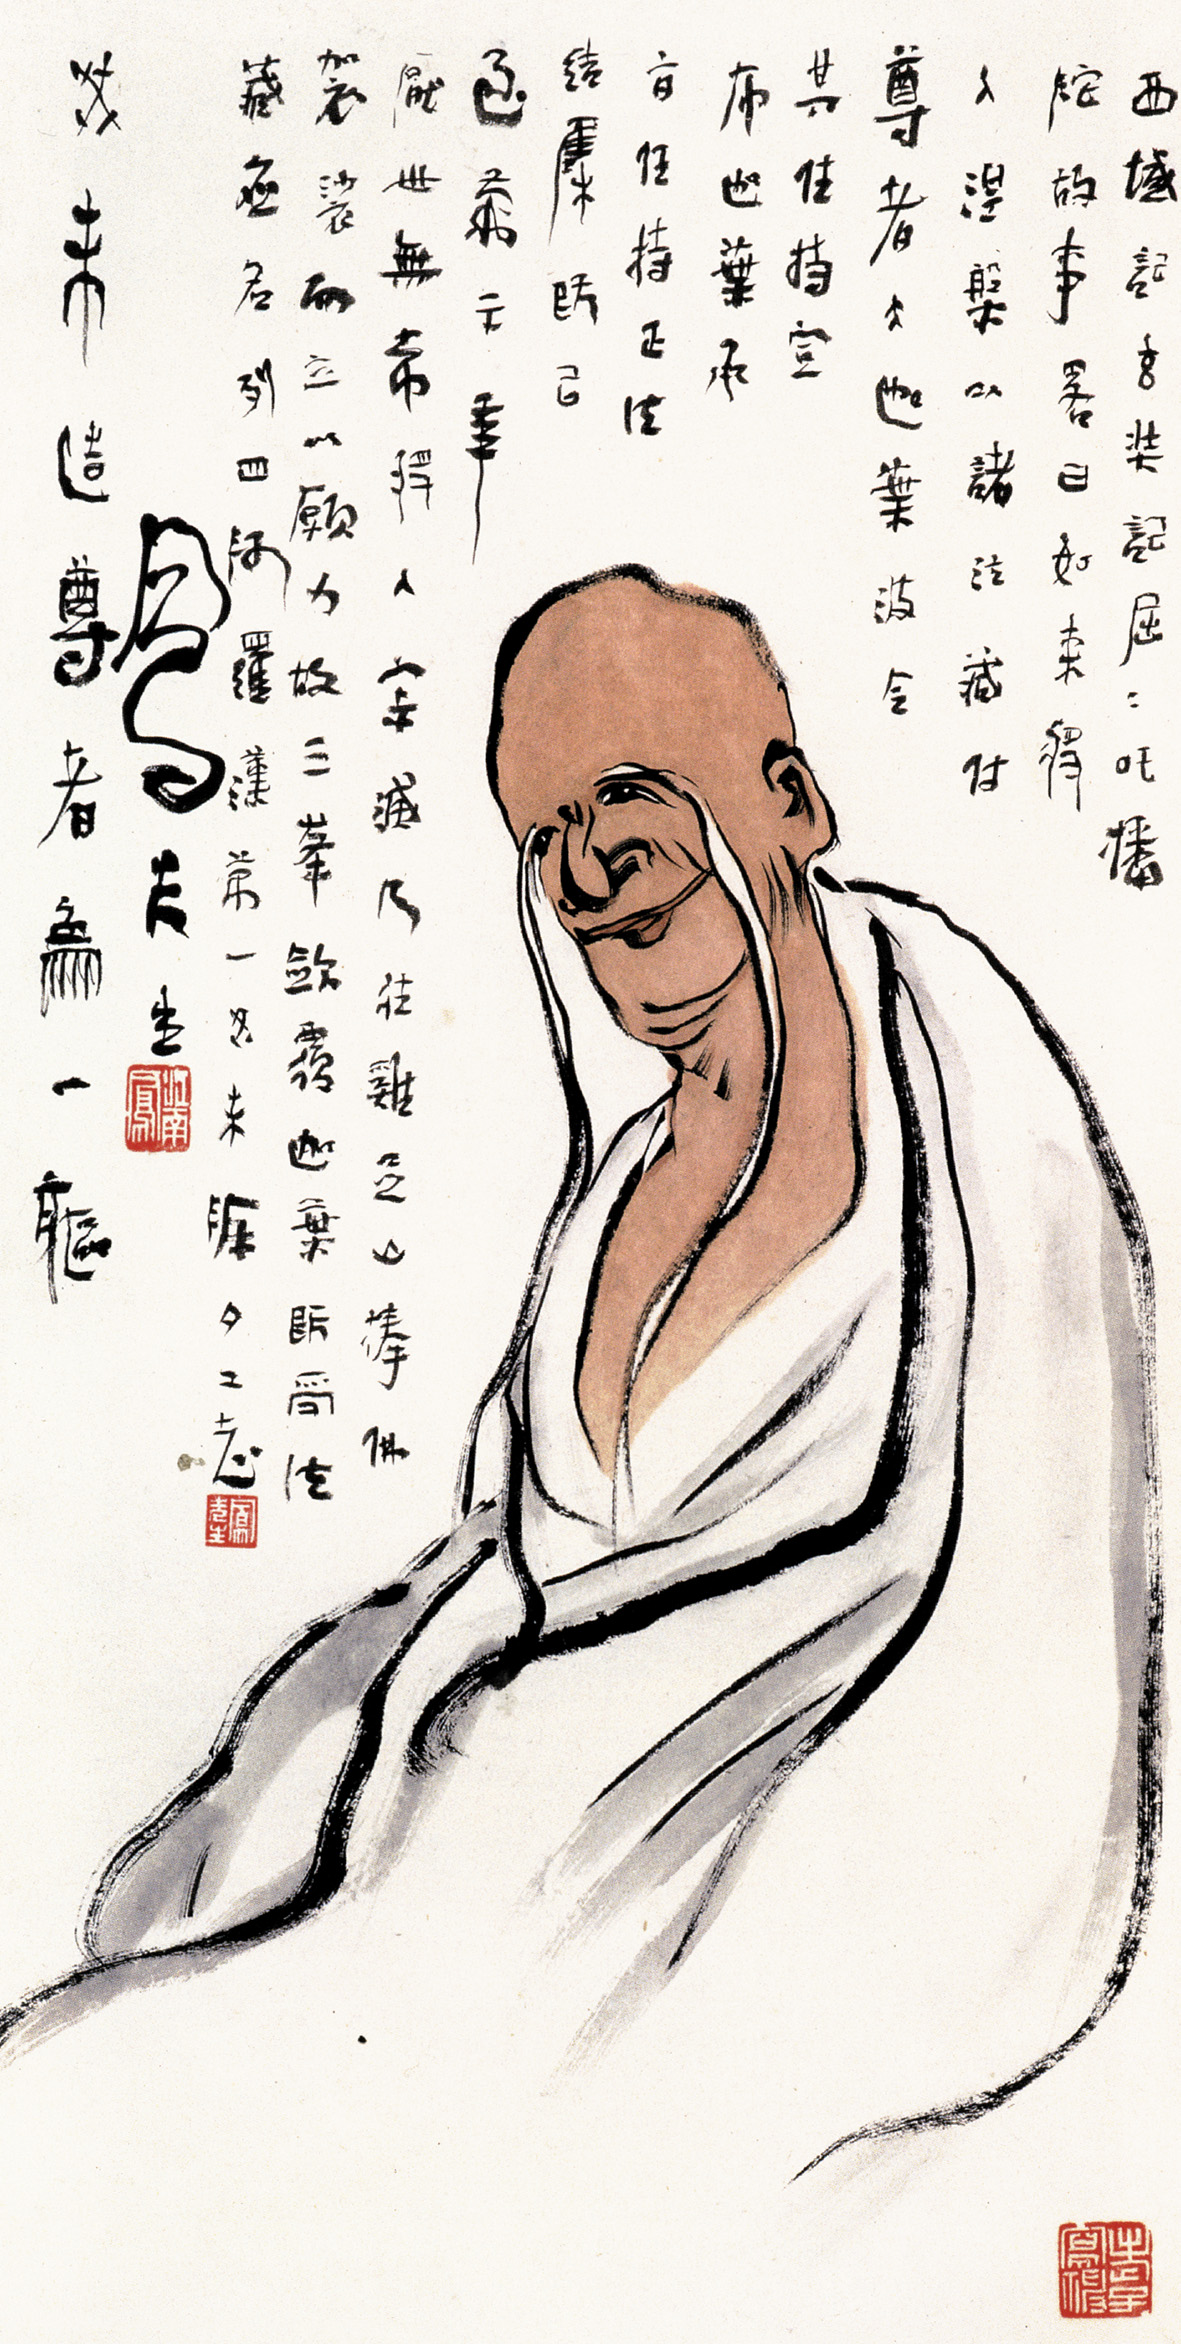 西域記玄奘記屈〻吒播
陀故事畧曰如來將
入涅槃以諸法藏付
尊者大迦葉波令
其住持宣
布迦葉承
旨住持正法
結集既已
第二十年
厭世無常將入寂滅乃往雞足山捧佛
袈裟而立以願力故三峯斂覆迦葉既受法
藏應名列四阿羅漢第一癸未臘夕
鳳先生
癸未造尊者為一軀